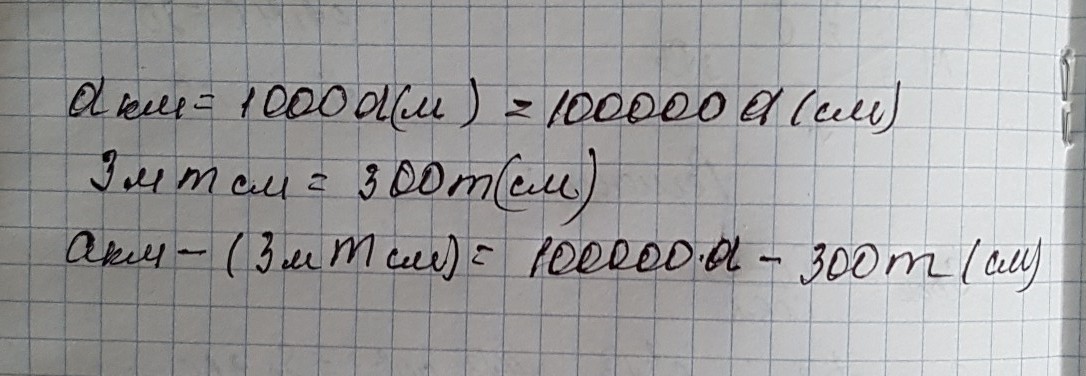 а км = 1000а(м) = 100000а (см)
3м m см = 300m(см)
а км - (3м m см) = 100000·а - 300m (см)